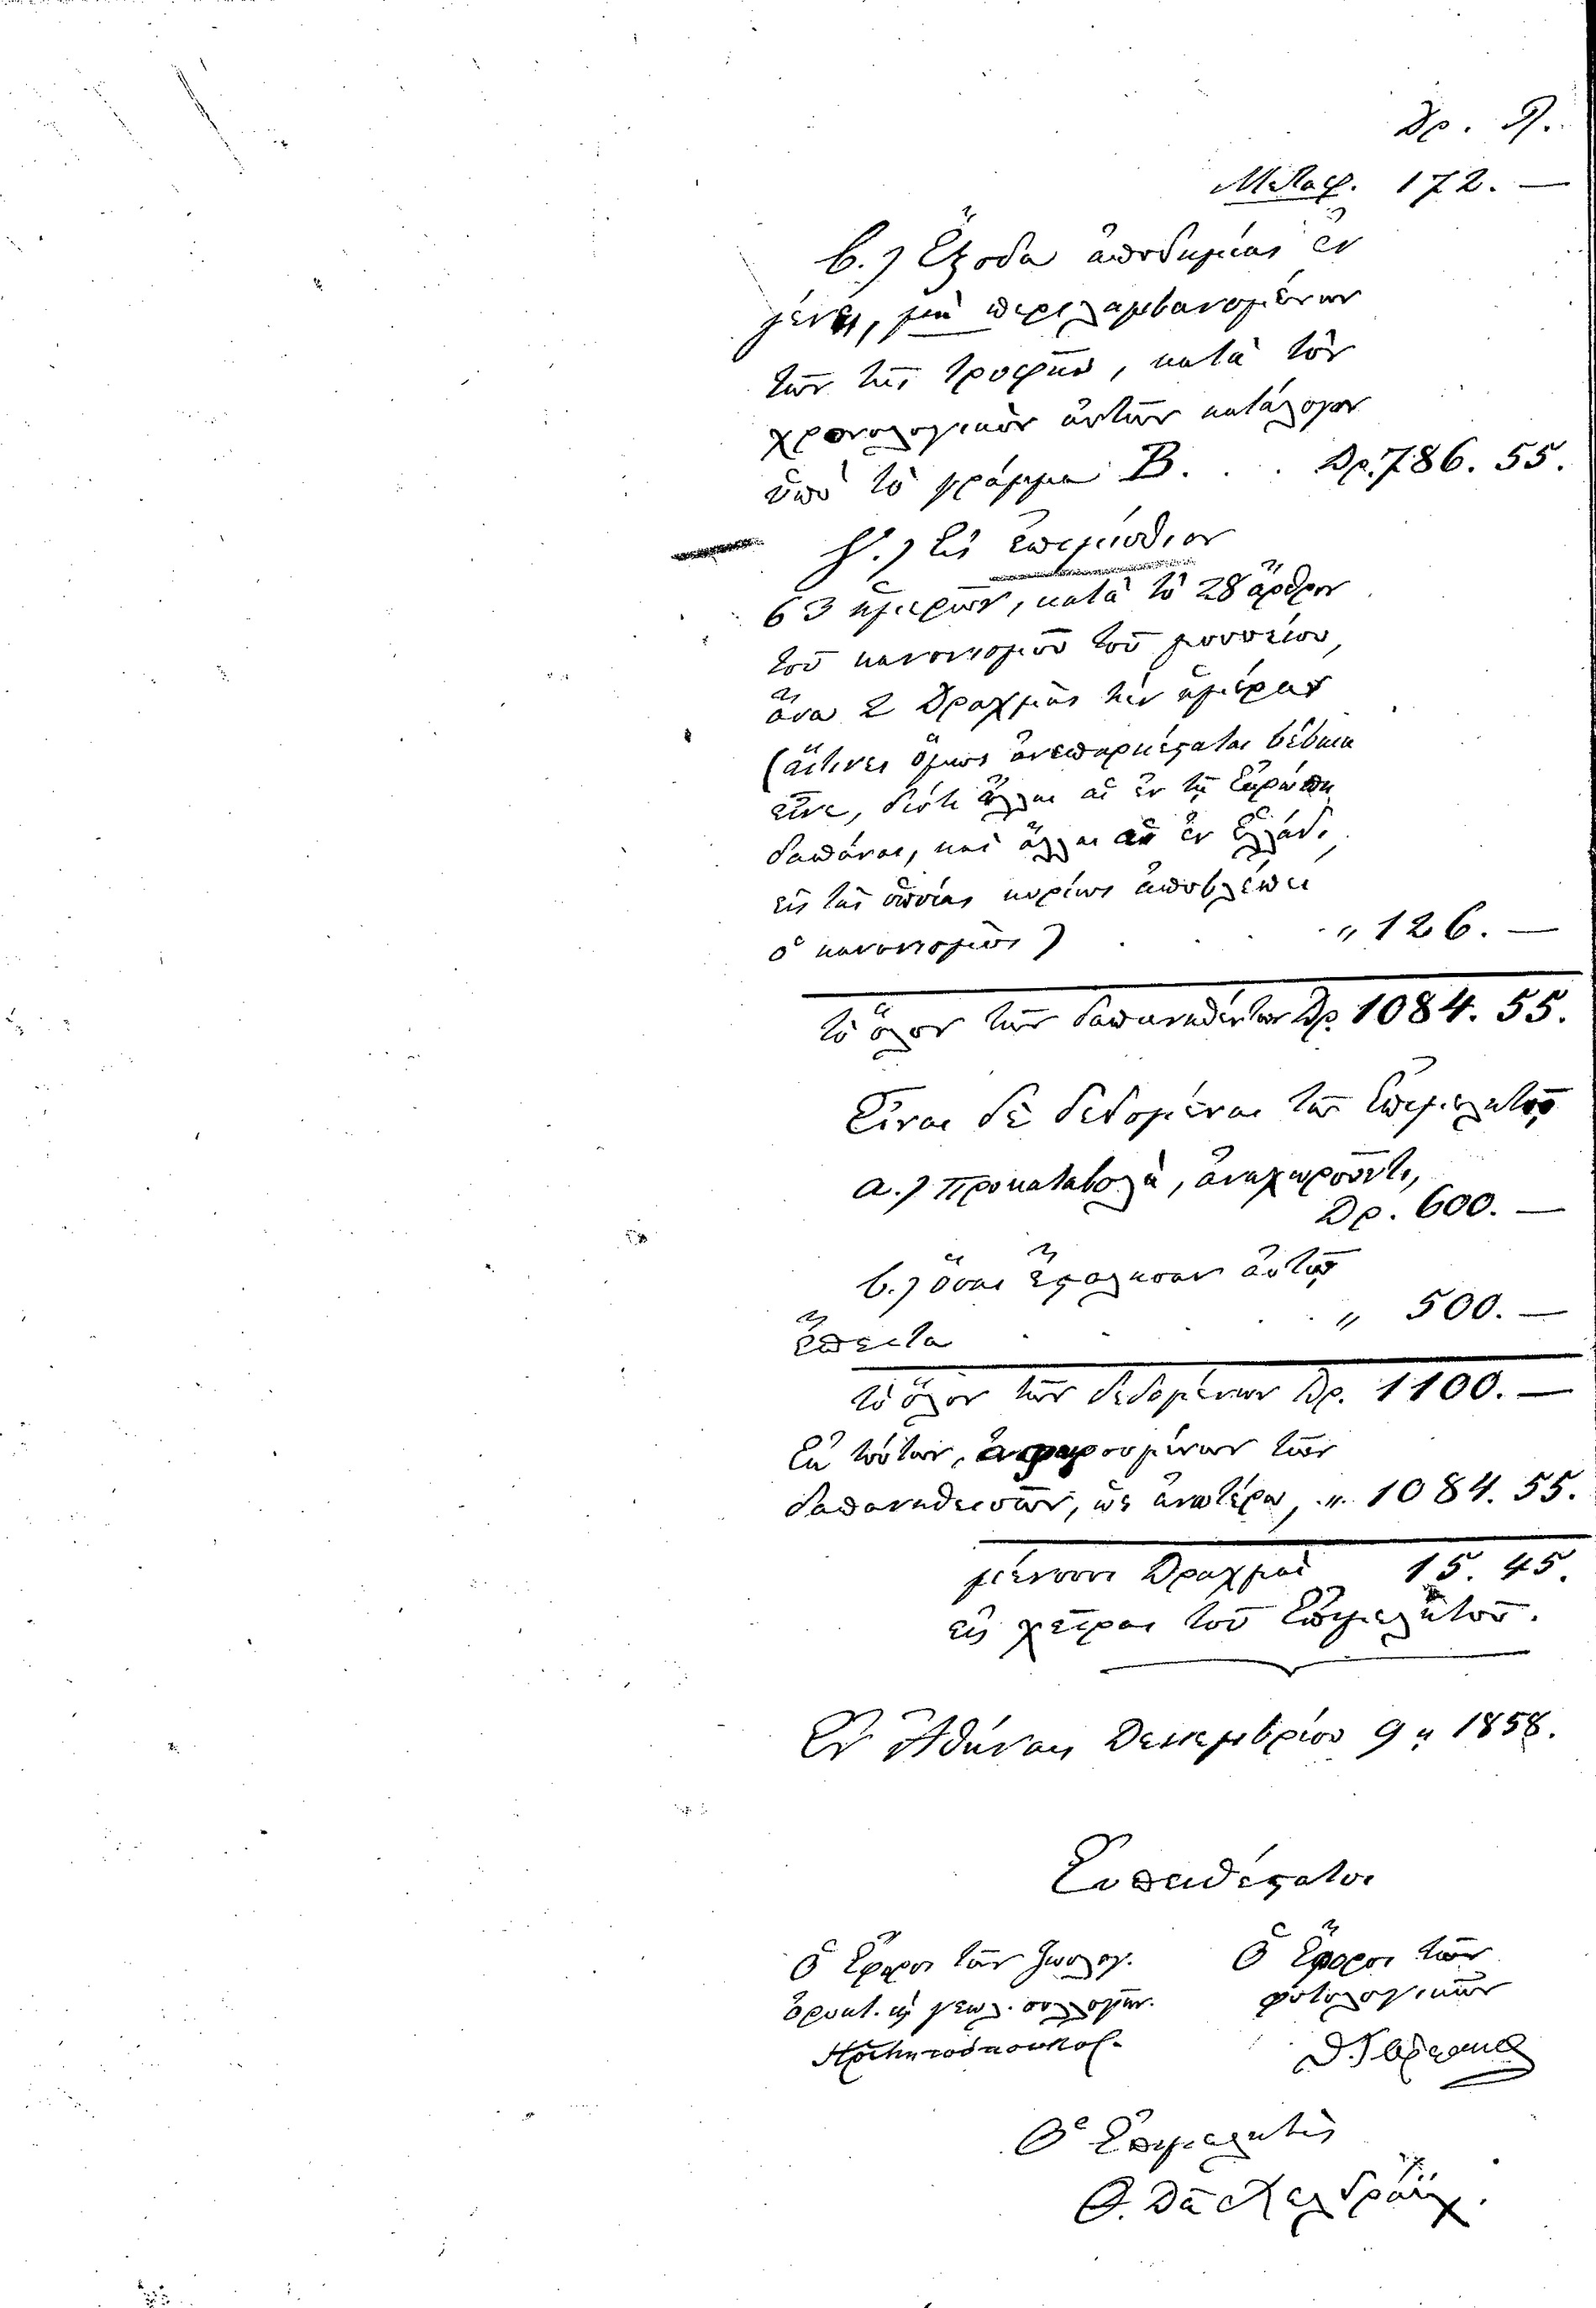 Δρ. Λ.
Μεταφ. 172. —
β.) Ἔξοδα ἀποδημίας ἐν
γένει, μὴ περιλαμβανομένων
τῶν τῆς τροφῆς, κατὰ τὸν
χρονολογικὸν αὐτῶν κατάλογον
ὑπὸ τὸ γράμμα Β. . . Δρ. 786. 55.
γ.) Εἰς ἐπιμίσθιον
63 ἡμερῶν, κατὰ τὸ 28 ἄρθρον
τοῦ κανονισμοῦ τοῦ μουσείου,
ἀνὰ 2 Δραχμὰς τὴν ἡμέραν
(αἵτινες ὅμως ἀνεπαρκέσταται βέβαια
εἶνε, διότι ἄλλαι αἱ ἐν τῇ Εὐρώπῃ
δαπάναι, καὶ ἄλλαι αἱ ἐν Ἑλλάδι,
εἰς τὰς ὁποίας κυρίως ἀποβλέπει
ὁ κανονισμὸς) . . . „ 126. —
τὸ ὅλον τῶν δαπανηθέντων Δρ. 1084. 55.
Εἶναι δὲ δεδομέναι τῷ Ἐπιμελητῇ
α.) Προκαταβολὴ, ἀναχωροῦντι,
Δρ. 600. —
β.) ὅσαι ἐστάλησαν αὐτῷ
ἔπειτα . . . . „ 500. —
τὸ ὅλον τῶν δεδομένων Δρ. 1100. —
Ἐκ τούτων, ἀφαιρουμένων τῶν
δαπανηθεισῶν, ὡς ἀνωτέρω, „ 1084. 55.
μένουσι Δραχμαὶ 15. 45.
εἰς χεῖρας τοῦ Ἐπιμελητοῦ.
Ἐν Ἀθήναις Δεκεμβρίου 9 „ 1858.
Εὐπειθέστατοι
Ὁ Ἔφορος τῶν ζωολογ. Ὁ Ἔφορος τῶν
ὀρυκτ. καὶ γεωλ. συλλογῶν. φυτολογικῶν
Ὁ Ἐπιμελητὴς
Θ. Δὲ Χελδράϊχ.